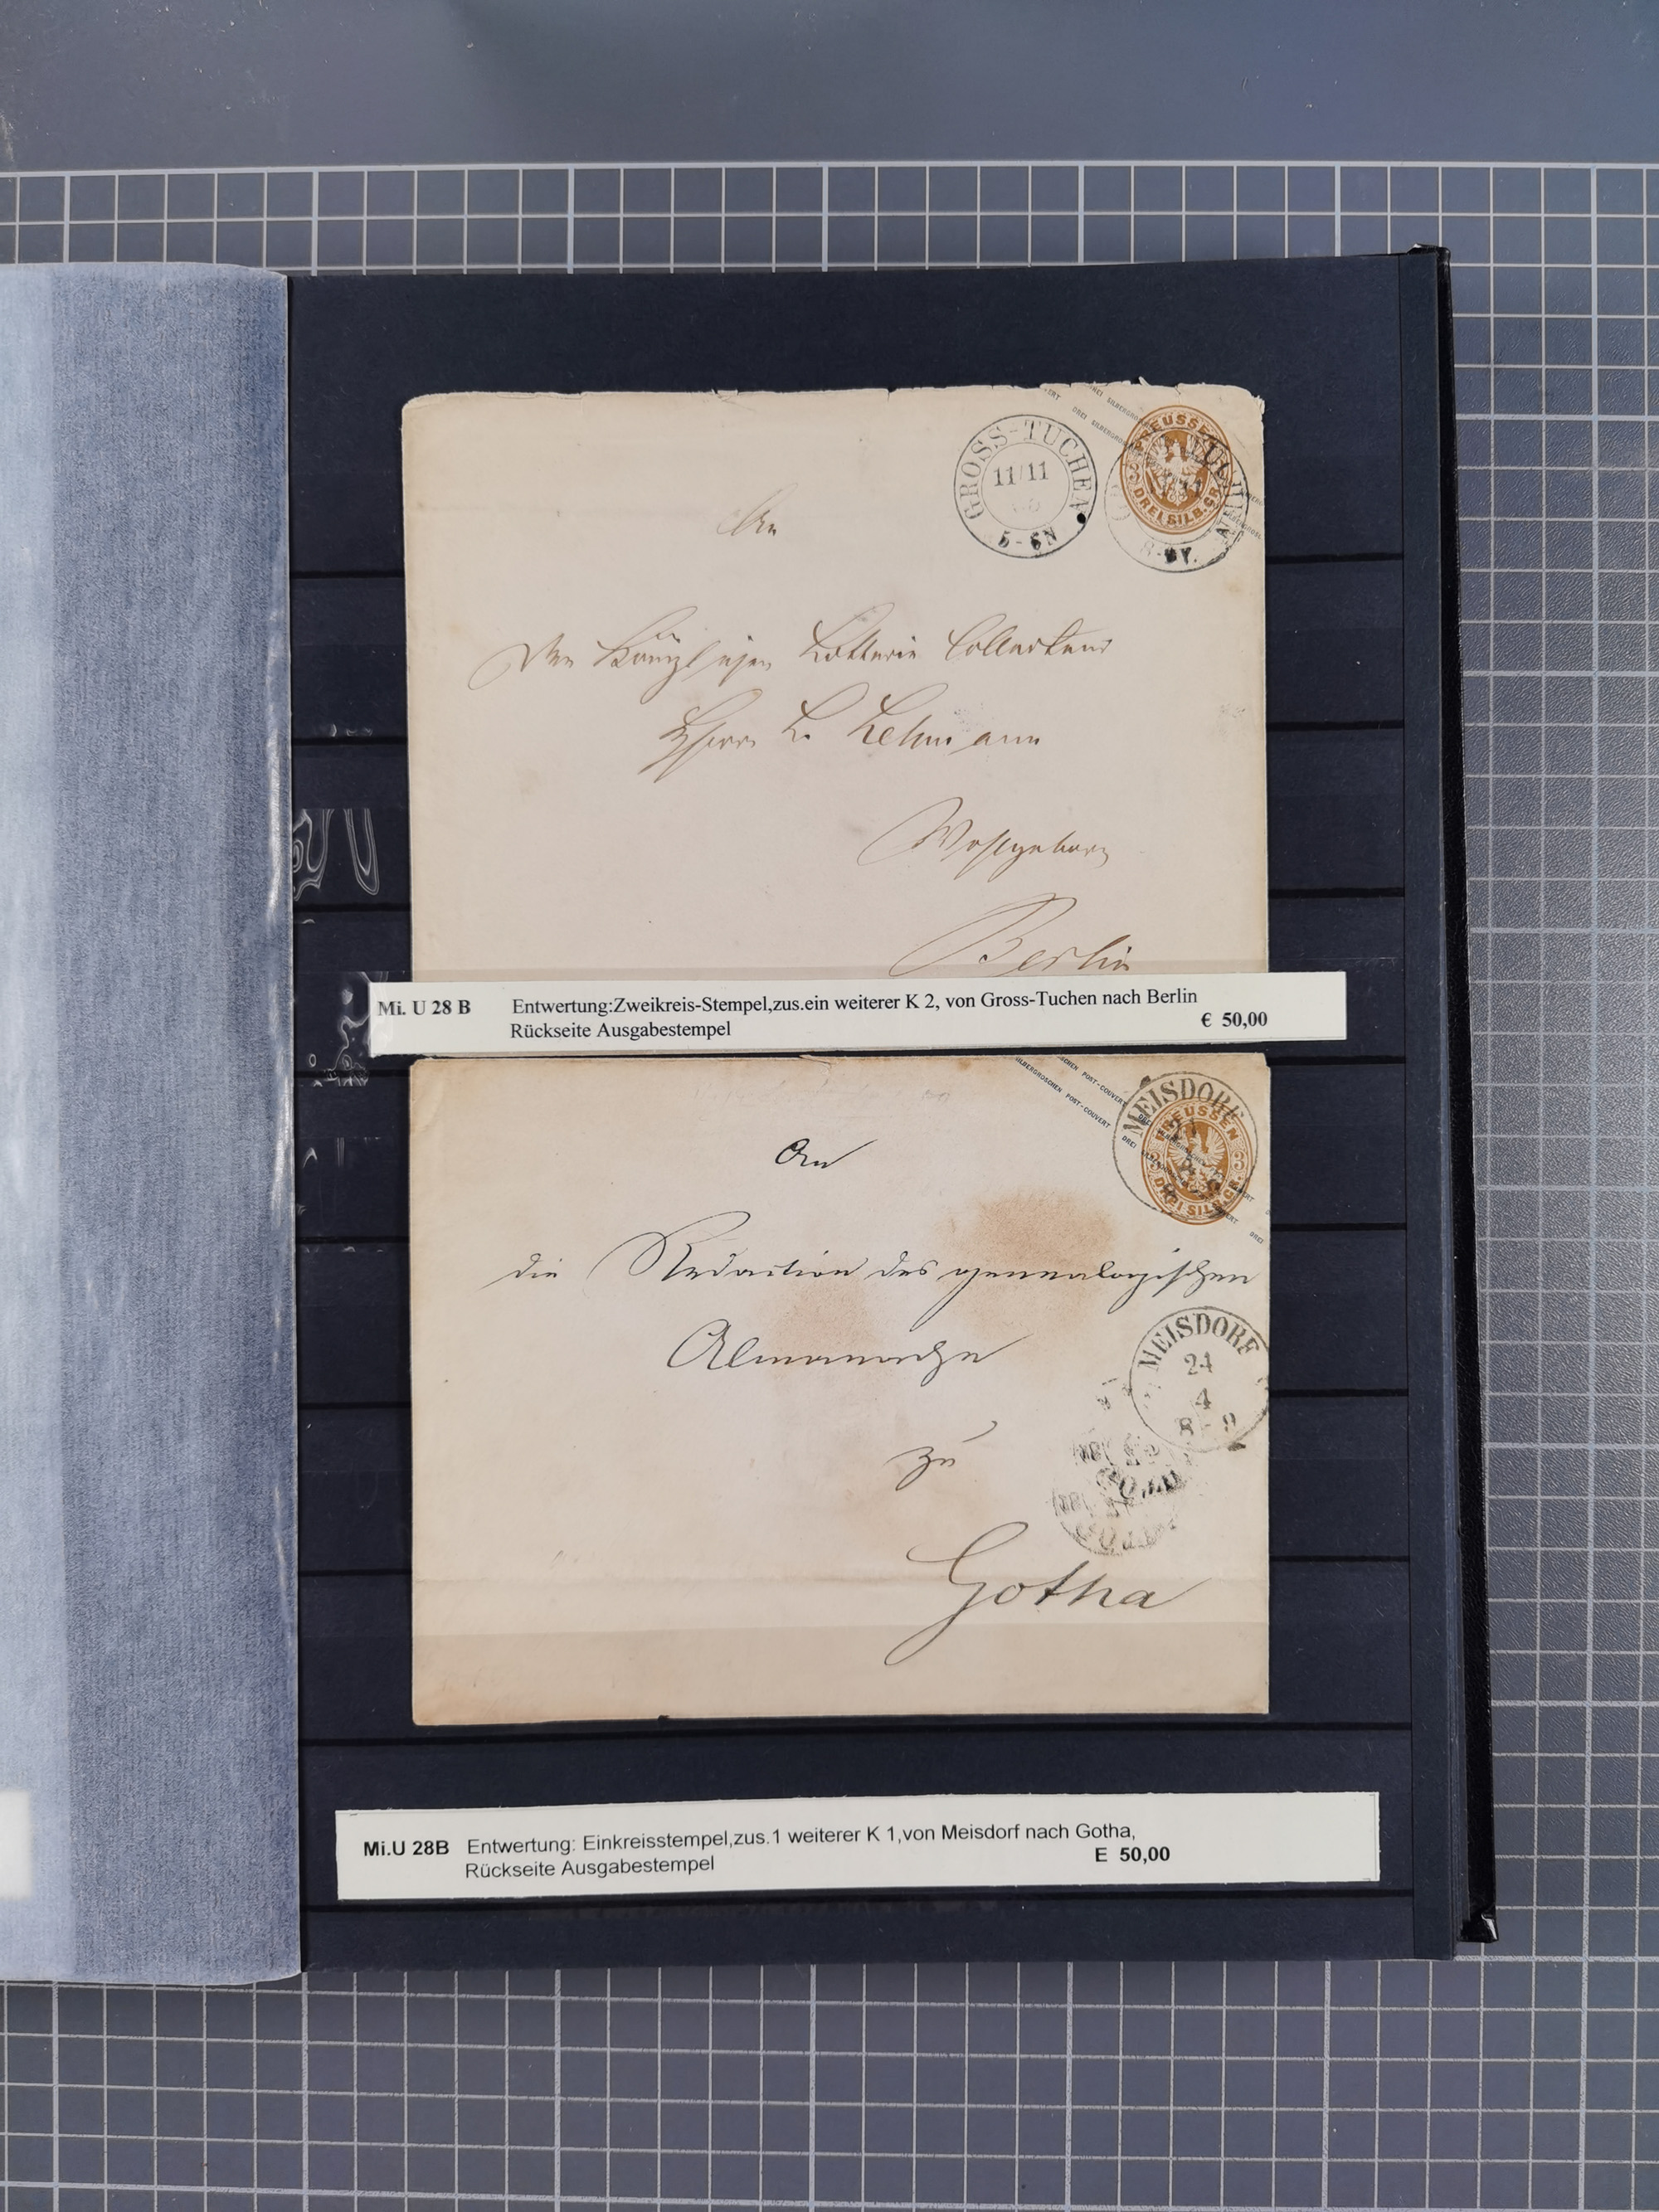 GROSS-TUCHEN
11/11
5-6N
PREUSSEN
DREI SILB.GR.
An
Den Königlichen Lotterie Collecteur
Herrn L. Lehmann
Wohlgeboren
Berlin
Mi. U 28 B Entwertung:Zweikreis-Stempel,zus.ein weiterer K 2, von Gross-Tuchen nach Berlin
Rückseite Ausgabestempel € 50,00
SILBERGROSCHEN POST-COUVERT
MEISDORF
PREUSSEN
DREI SILB.GR.
An
die Redaction des genealogischen
Almanachs
MEISDORF
24
4
8-9
zu
Gotha
Mi.U 28B Entwertung: Einkreisstempel,zus.1 weiterer K 1,von Meisdorf nach Gotha,
Rückseite Ausgabestempel E 50,00